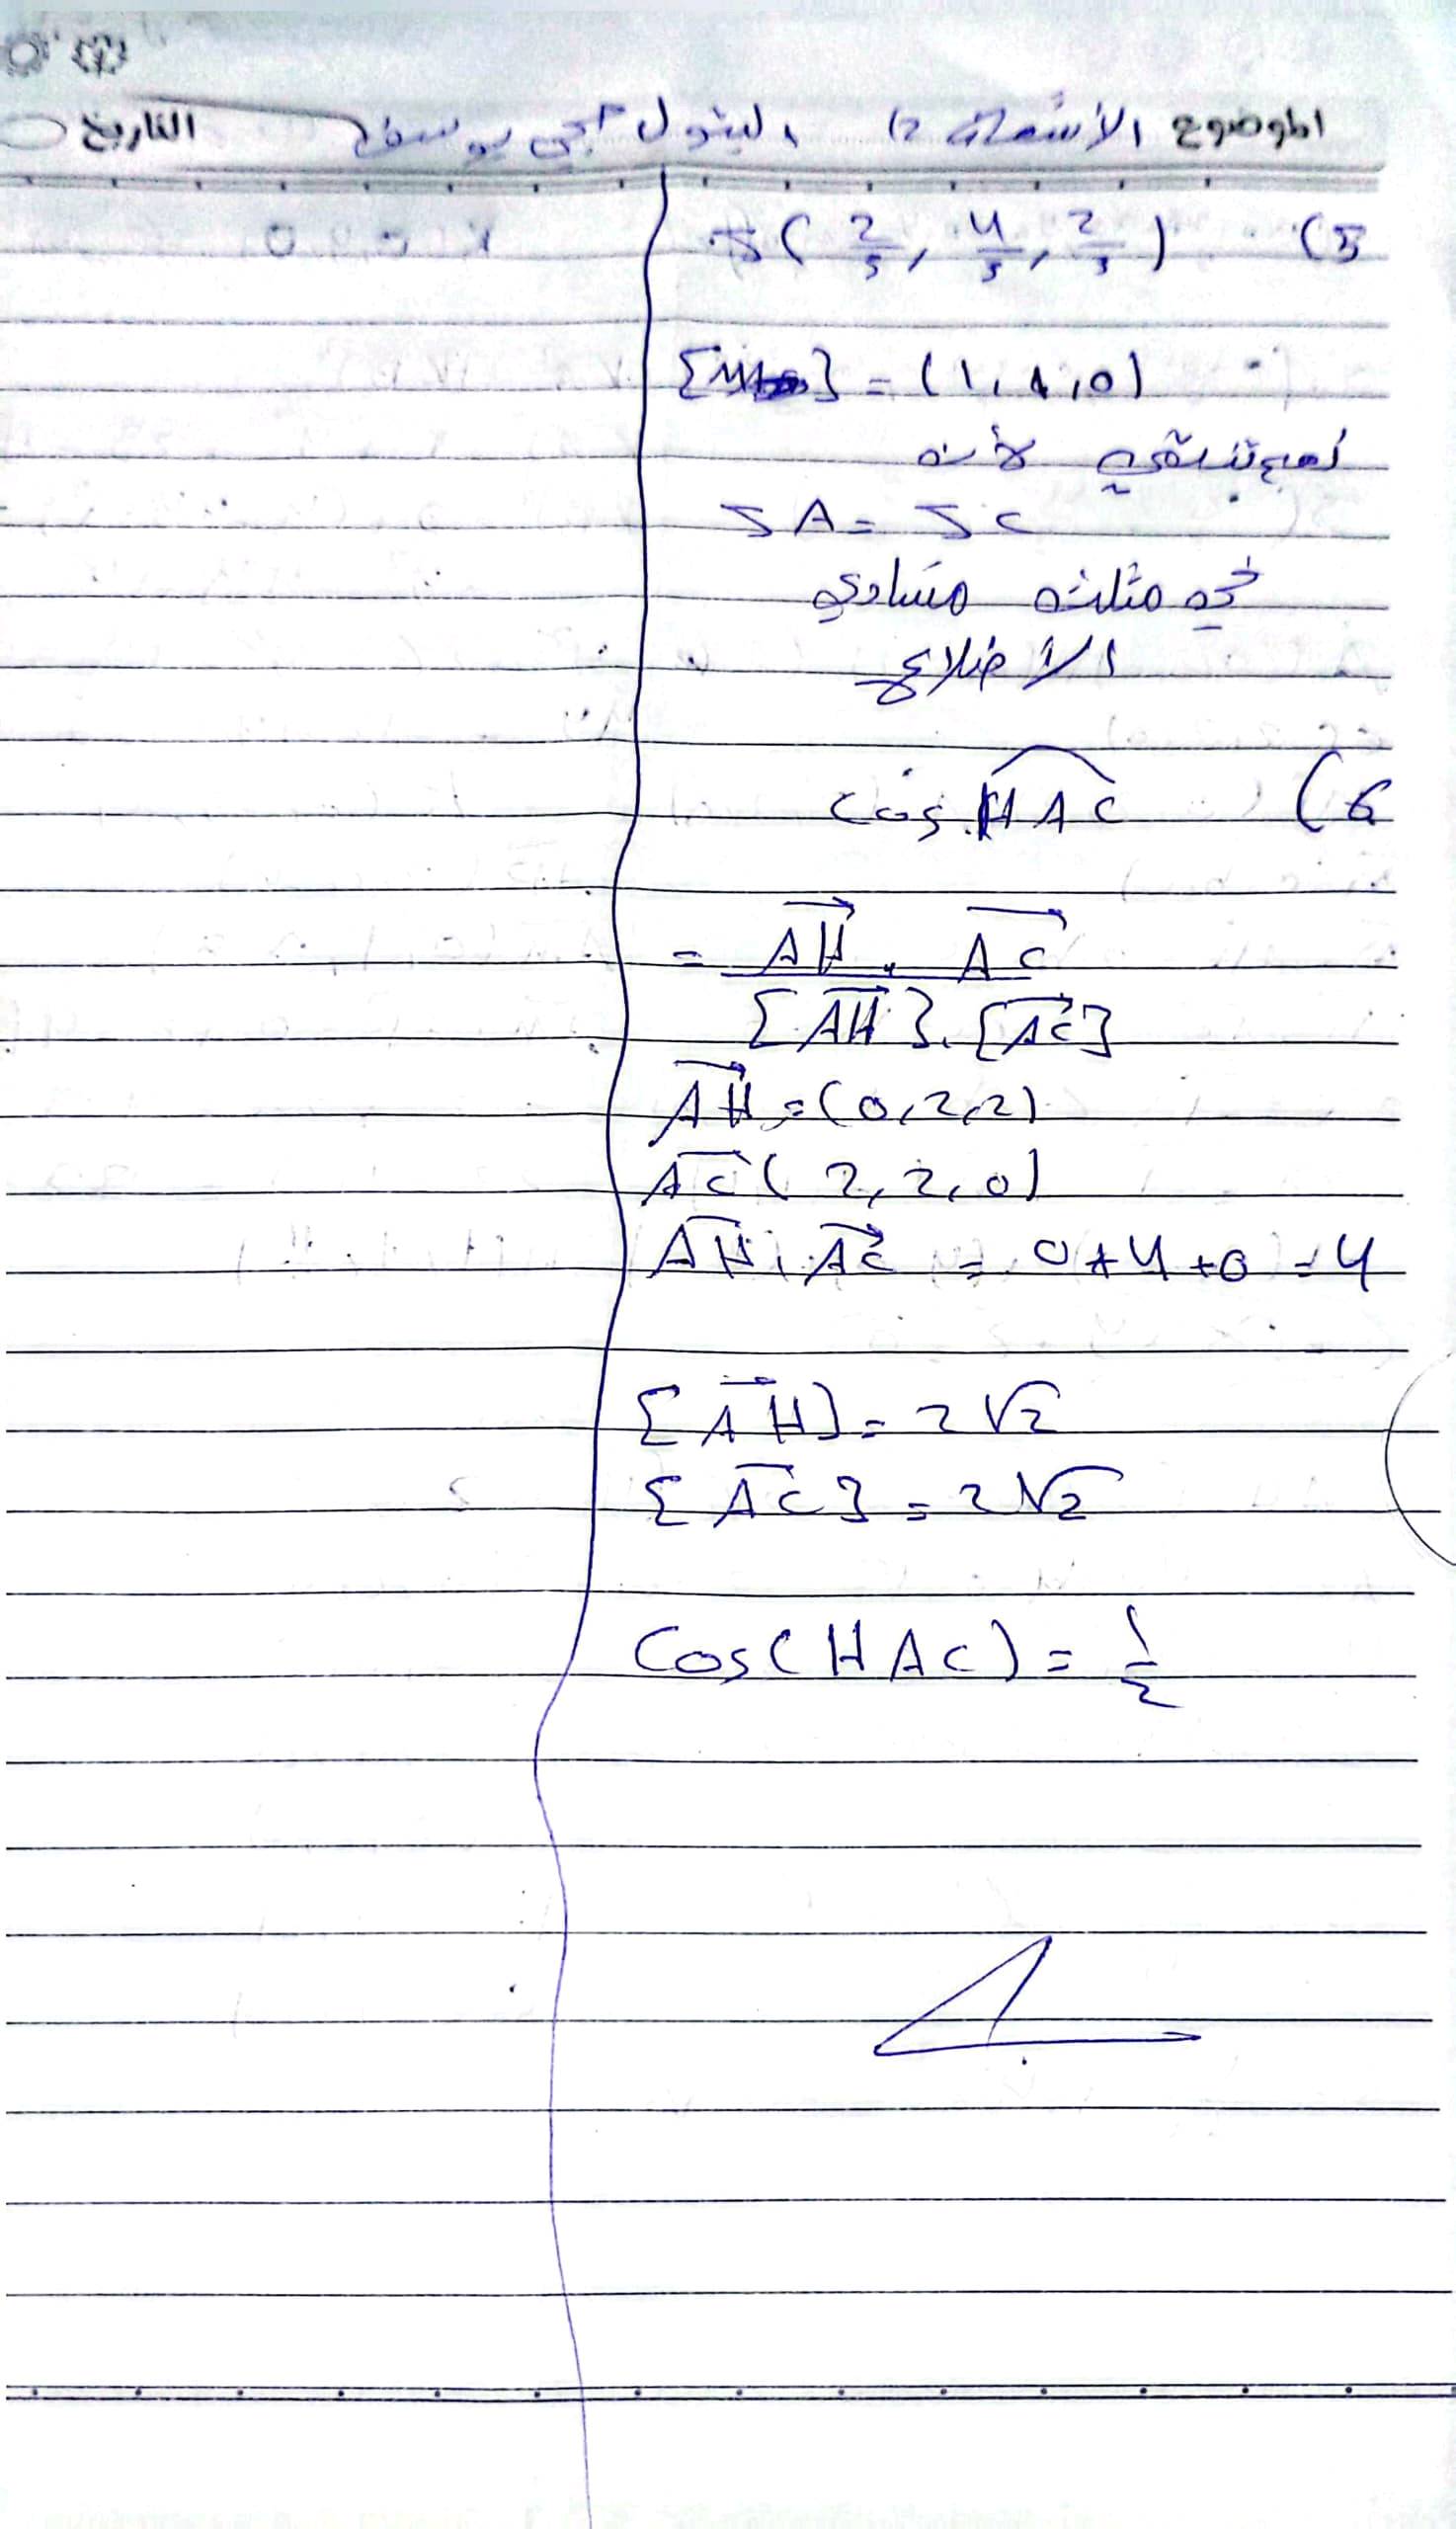 الموضوع الأشعة (2 البتول يوسف التاريخ
5) J( 2/3 , 4/3 , 2/3 )
= (1,1,0)
لأنه
JA = JC
في مثلث متساوي
الأضلاع
6) cos HAC
= AH . AC / [AH] . [AC]
AH = (0,2,2)
AC ( 2,2,0)
AH . AC = 0+4+0 = 4
[AH] = 2√2
[AC] = 2√2
Cos(HAC) = 1/2